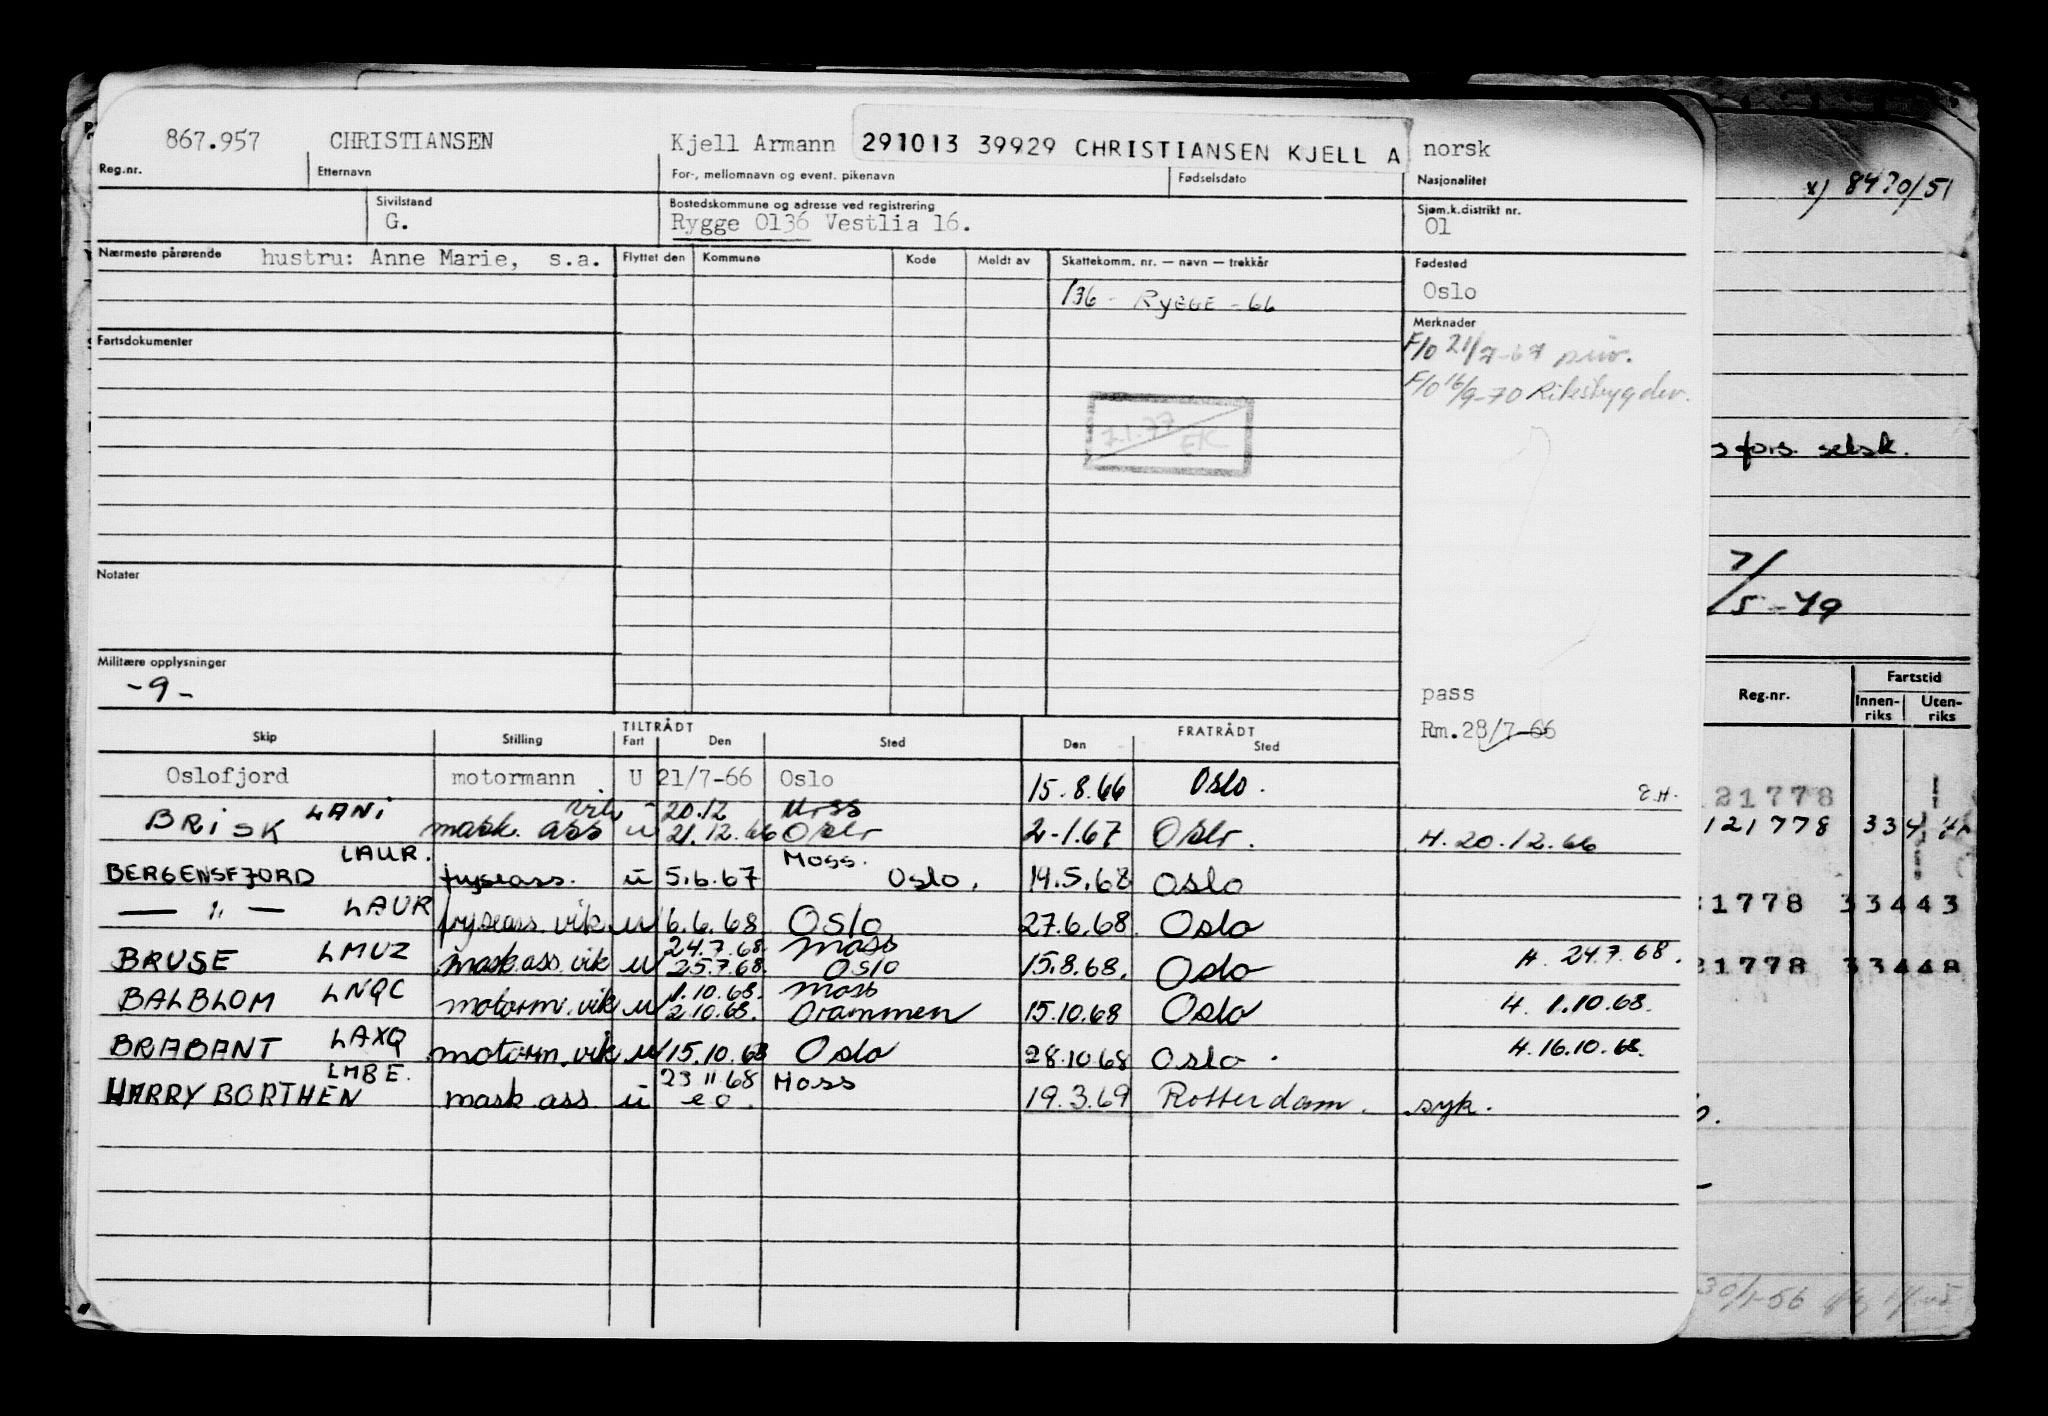 867.957 CHRISTIANSEN Kjell Armann 291013 39929 CHRISTIANSEN KJELL A norsk
Reg.nr. Etternavn For-, mellomnavn og event. pikenavn Fødselsdato Nasjonalitet
x) 8470/51
Sivilstand Bostedskommune og adresse ved registrering Sjøm.k.distrikt nr.
G. Rygge 0136 Vestlia 16. 01
Nærmeste pårørende hustru: Anne Marie, s.a. Flyttet den Kommune Kode Meldt av Skattekomm. nr. — navn — trekkår Fødested
136 - RYGGE - 66 Oslo
Merknader
Fartsdokumenter F/O 21/7-67 priv.
F/O 16/9-70 Riksbygder.
7.1.77 EK
fors. selsk.
Notater
7/5-49
Militære opplysninger
-9-
pass
Reg.nr. Fartstid
Innen-riks Uten-riks
Rm.28/7-66
Skip Stilling TILTRÅDT Fart Den Sted FRATRÅDT Den Sted
Oslofjord motormann U 21/7-66 Oslo 15.8.66 Oslo. E.H.
21778
BRISK LANI mask. ass vik u 20.12 Moss
21.12.66 Oslo 2-1.67 Oslo. H. 20.12.66
121778 334
BERGENSFJORD LAUR. fryseass. u 5.6.67 Moss. Oslo. 14.5.68 Oslo
— " — LAUR fryseass. vik u 6.6.68 Oslo 27.6.68 Oslo
1778 33443
BRUSE LMUZ mask ass. vik u 24.7.68 Moss
25.7.68 Oslo 15.8.68. Oslo H. 24.7.68.
1778 33448
BALBLOM LNQC motorm. vik u 1.10.68. Moss
2.10.68. Drammen 15.10.68 Oslo H. 1.10.68.
BRABANT LAXQ motorm. vik u 15.10.68 Oslo 28.10.68 Oslo. H. 16.10.68.
HARRY BORTHEN LMBE. mask ass u 23 11 68 Moss
e o. 19.3.69 Rotterdam. syk.
30/1-56